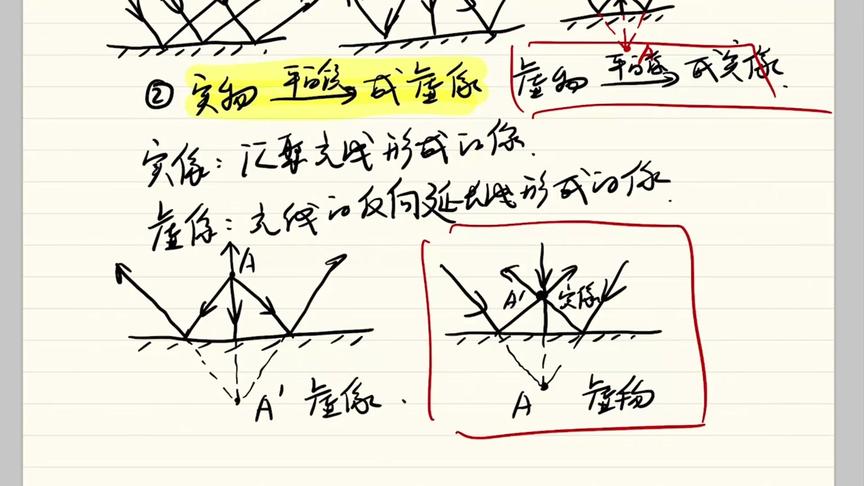 ② 实物 平面镜 成虚像 虚物 平面镜 成实像.
实像：汇聚光线形成的像.
虚像：光线的反向延长线形成的像.
A
A' 实像
A' 虚像.
A 虚物